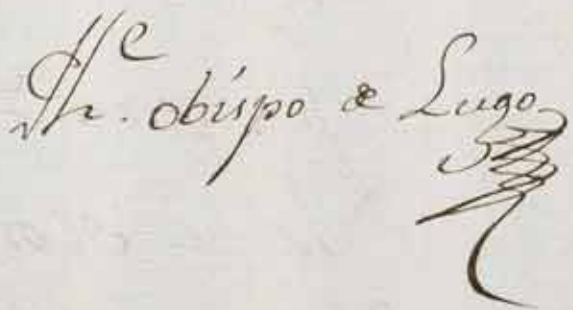 obispo de Lugo